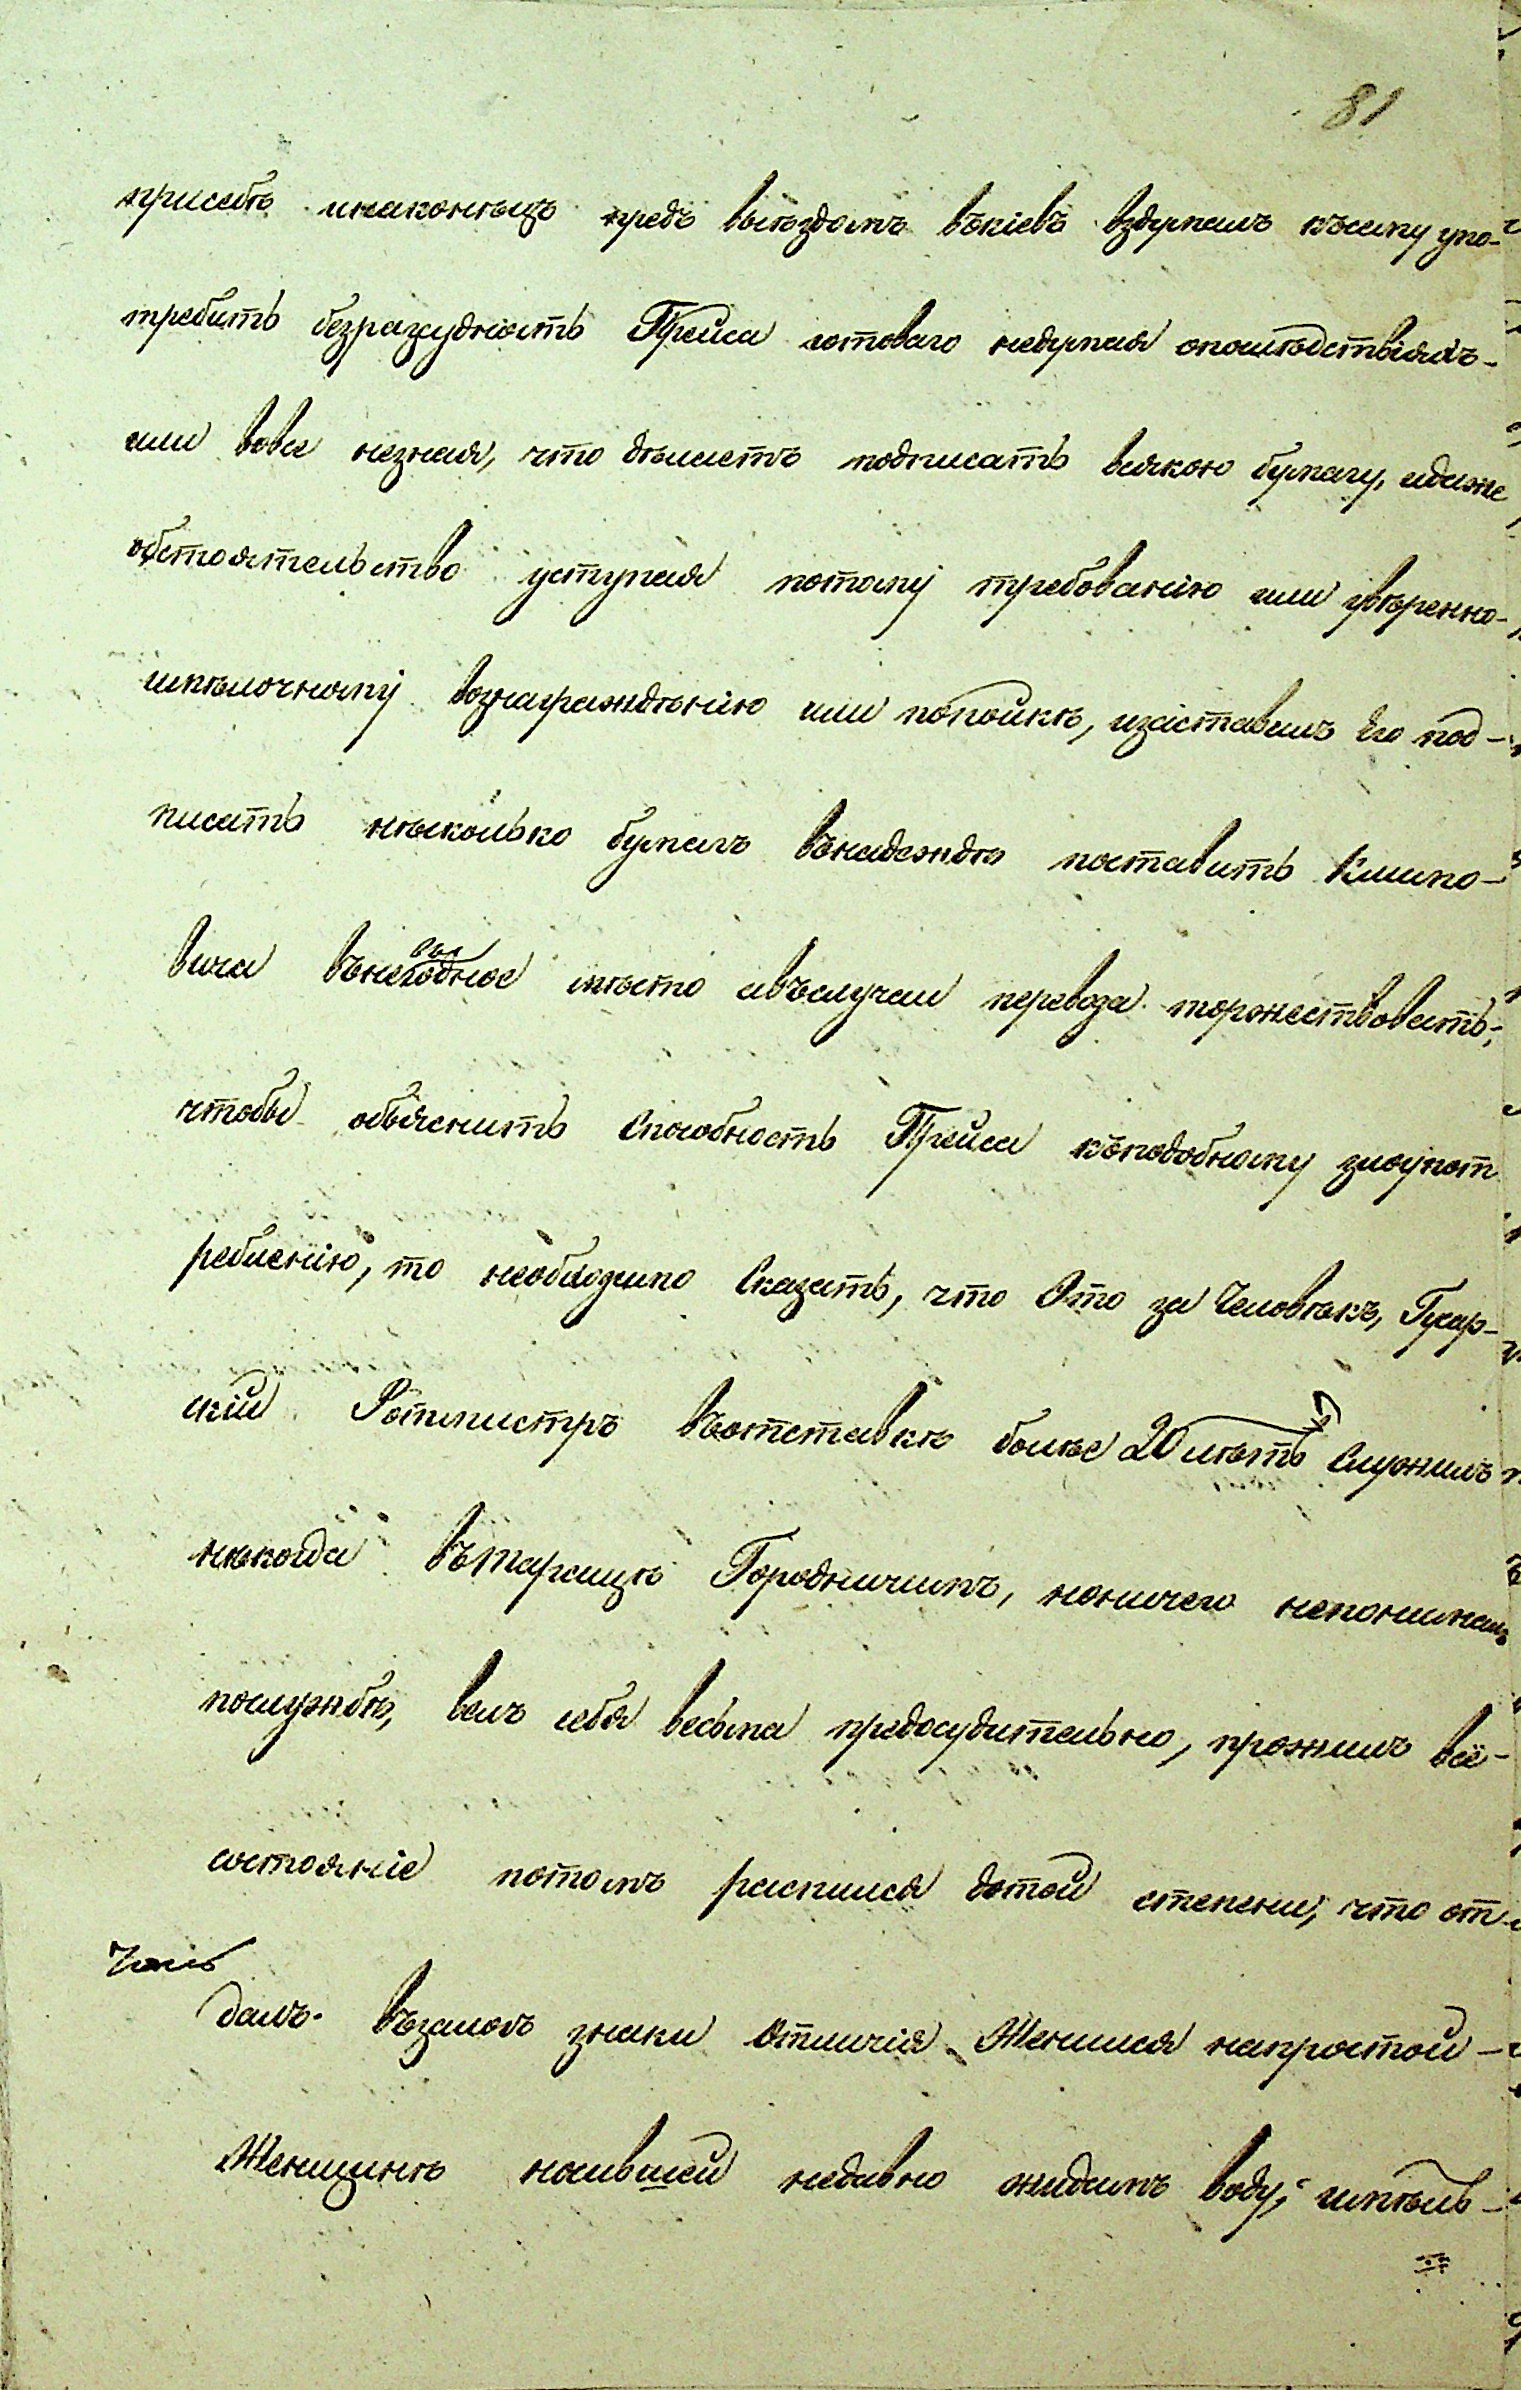 81
присебѣ инаконецъ предъ выѣздомъ въкіевъ вздумалъ къему упо-
требить безразсудность Прейса готоваго недумая опошлѣдствіяхъ-
или вовсе незная, что дѣлаетъ подписать всякою бумагу, идаже
обстоятельство уступая потому требованію или увѣренно-
имѣлочному вознагражденію или попойкѣ, изаставилъ Его под-
писать нѣсколько бумагъ вънадеждѣ поставить Климо-
вича въневыгодное мѣсто авъслучаи перевода торжествовать;
чтобы объяснить Способность Прейса къподобному злоупот
ребленію, то необходимо Сказать, что Это за Человѣкъ, Гусар-
скій Ротмистръ въотставкѣ болѣе 20 лѣтъ Служилъ
нѣкогда въТаращѣ Городничимъ, ноничего непонималъ
послужбѣ, велъ себя весьма предосудительно, прожилъ всё-
состояніе потомъ распился дотой степени, что от
далъ възалогъ знаки Отличія Женился напростой-
Женщинѣ носившей недавно жидамъ воду; имѣлъ-